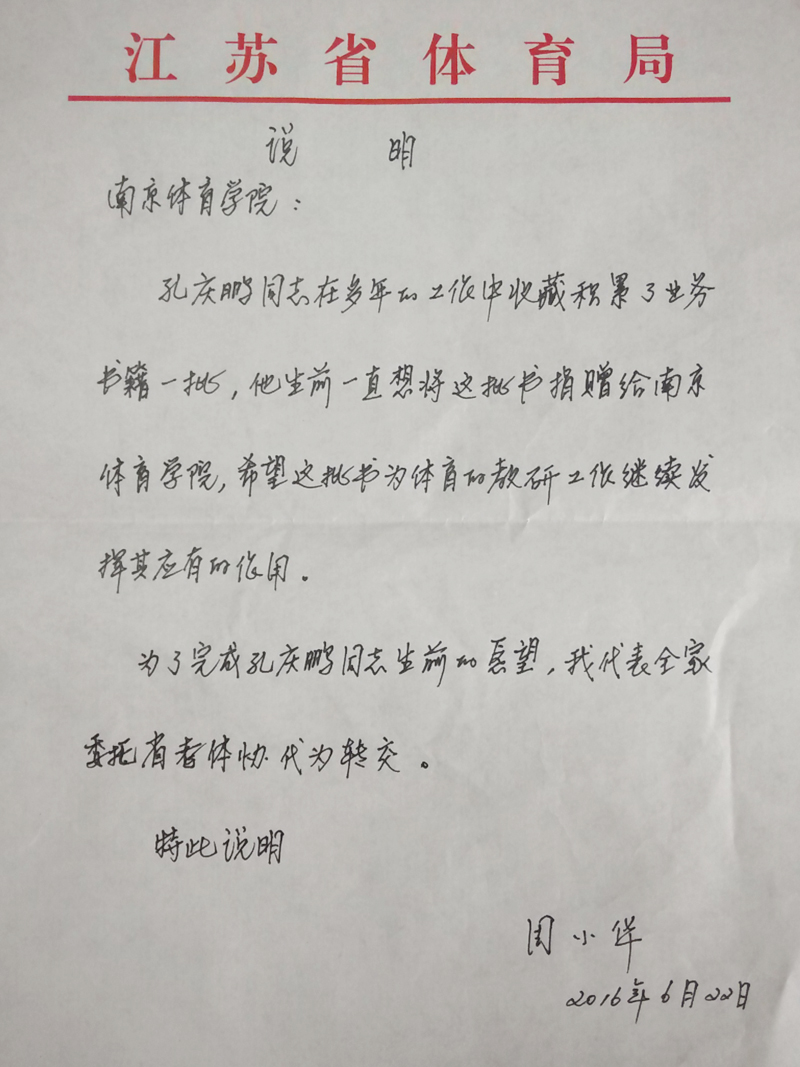 江苏省体育局
说 明
南京体育学院：
孔庆鹏同志在多年的工作中收藏积累了业务
书籍一批，他生前一直想将这批书捐赠给南京
体育学院，希望这批书为体育的教研工作继续发
挥其应有的作用。
为了完成孔庆鹏同志生前的愿望，我代表全家
委托省老体协代为转交。
特此说明
周小华
2016年6月22日